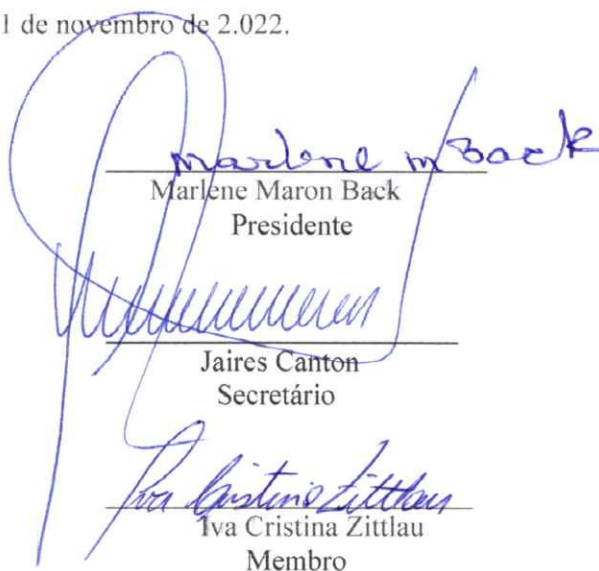 1 de novembro de 2.022.
Marlene M Back
Marlene Maron Back
Presidente
Jaires Canton
Secretário
Iva Cristina Zittlau
Iva Cristina Zittlau
Membro